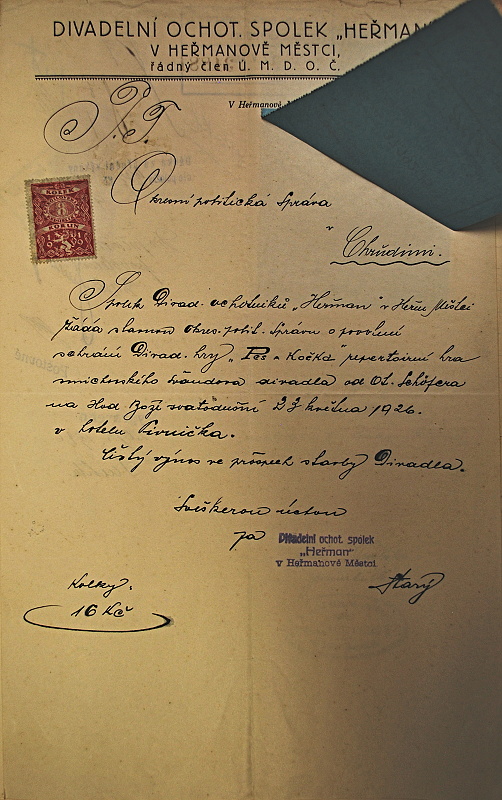 DIVADELNÍ OCHOT. SPOLEK „HEŘMAN
V HEŘMANOVĚ MĚSTCI,
řádný člen Ú. M. D. O. Č.
V Heřmanově
P. T.
KOLEK
KORUN
Okresní politická Správa
v
Chrudimi.
Spolek Divad. ochotníků „Heřman" v Heřm. Městci
žádá slavnou okres. polit. Správu o povolení
sehrání Divad. hry „Pes a Kočka" repertoirní hra
smíchovského Švandova divadla od Ot. Schäfera
na Hod Boží svatodušní 23 května 1926.
v hotelu Pivnička.
Čistý výnos ve prospěch stavby Divadla.
S veškerou úctou
pa
Divadelní ochot. spolek
„Heřman"
v Heřmanově Městci
Starý
Kolky.
16 Kč